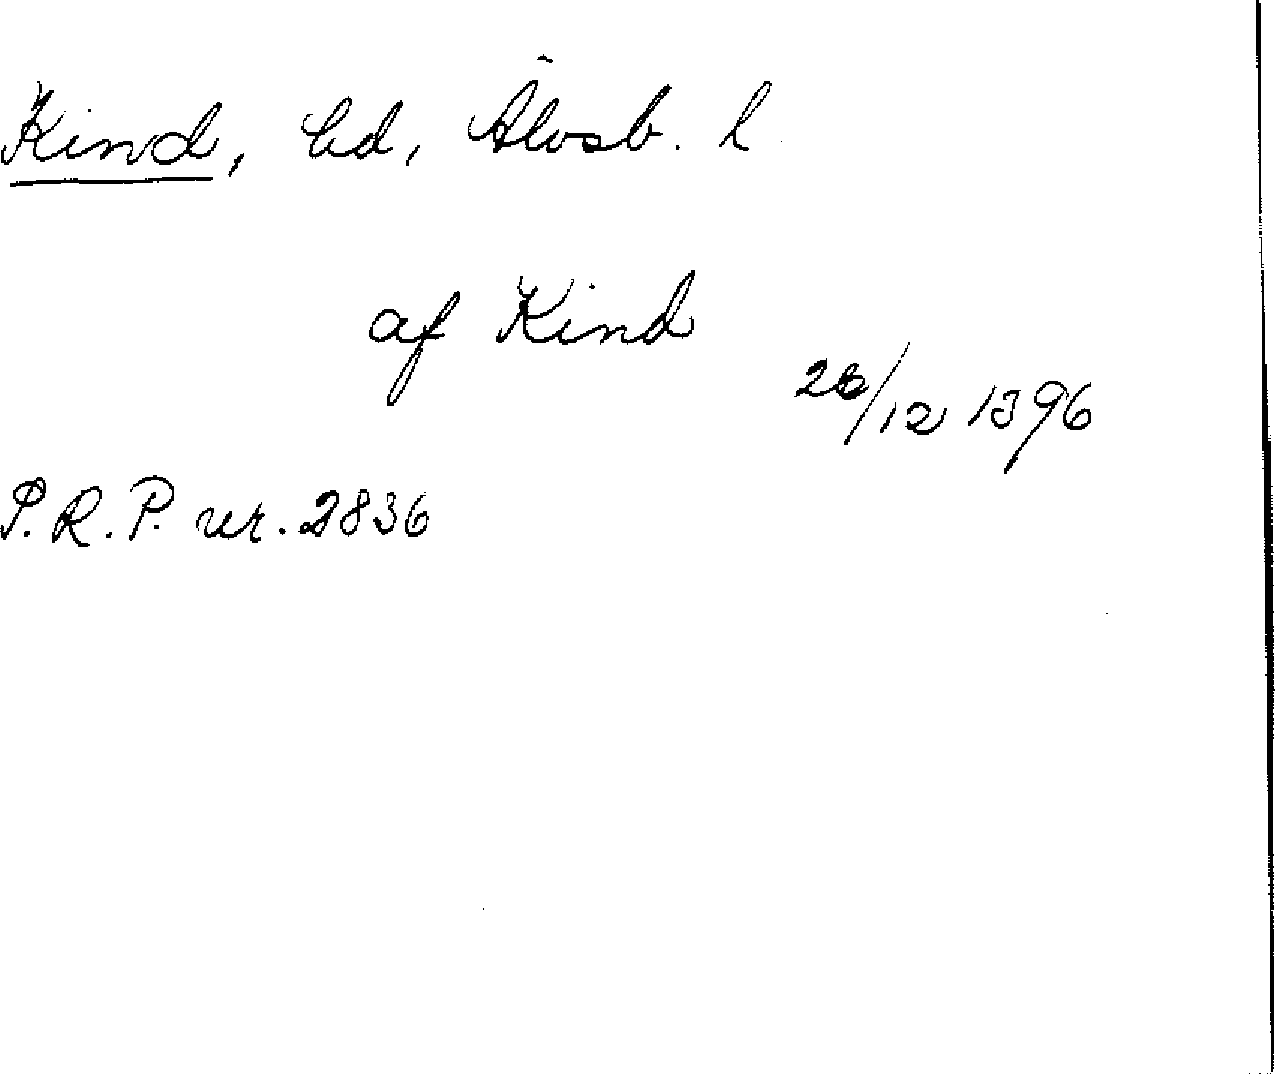 Kind, hd, Älvsb. l.
af Kind
28/12 1396
P.R.P. nr. 2836